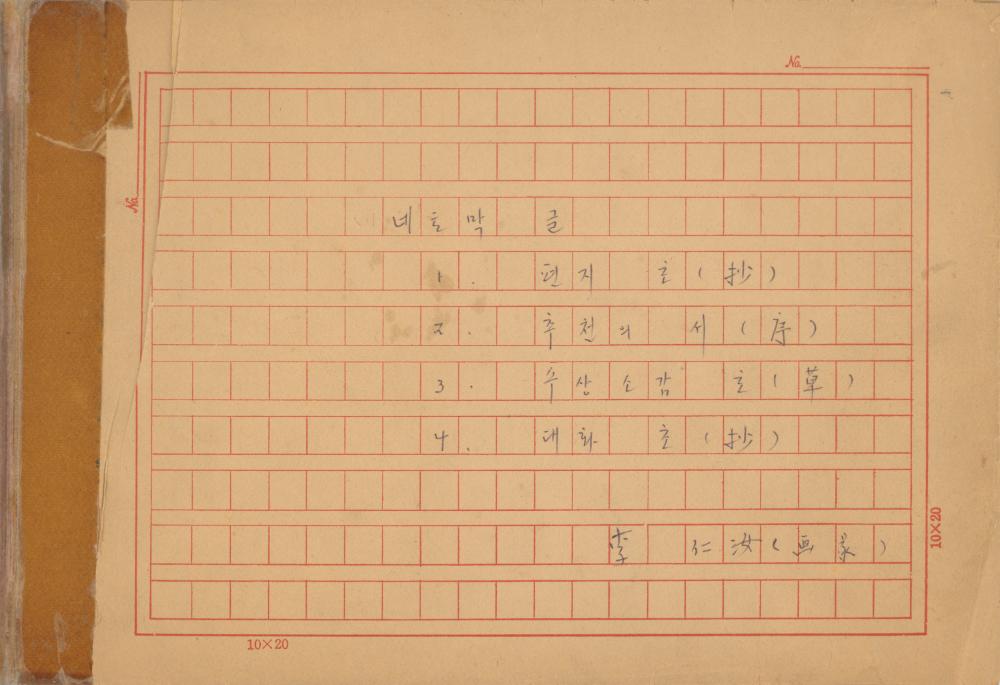 No.
No.
네토막 글
1. 편지 초(抄)
2. 추천의 서(序)
3. 수상소감 초(草)
4. 대화 초(抄)
李 仁汝(画家)
10×20
10×20